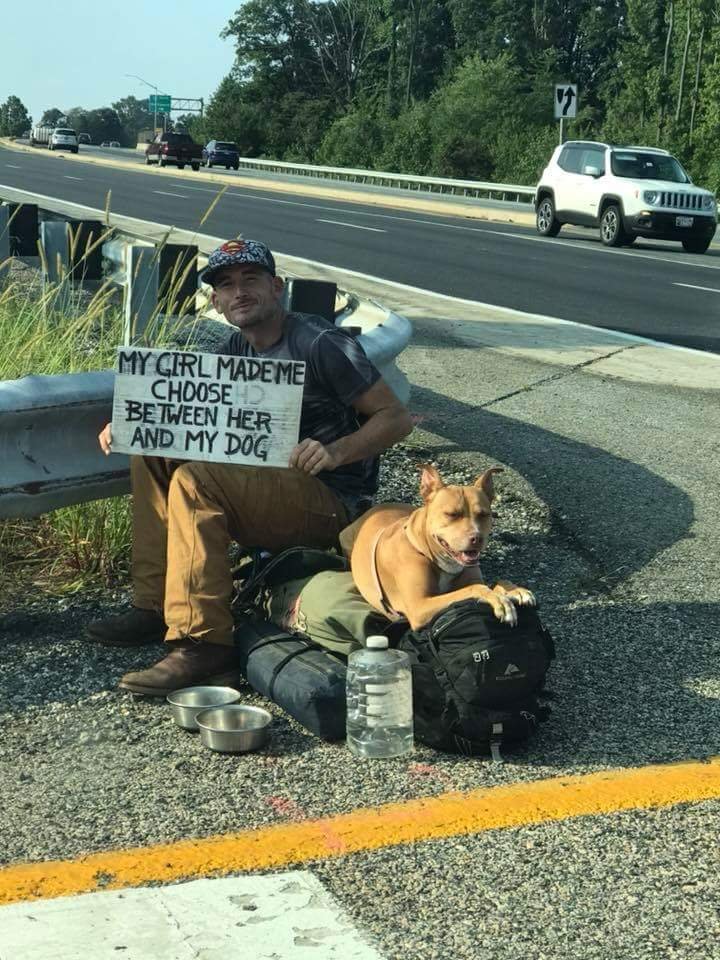 MY GIRL MADE ME
CHOOSE
BETWEEN HER
AND MY DOG